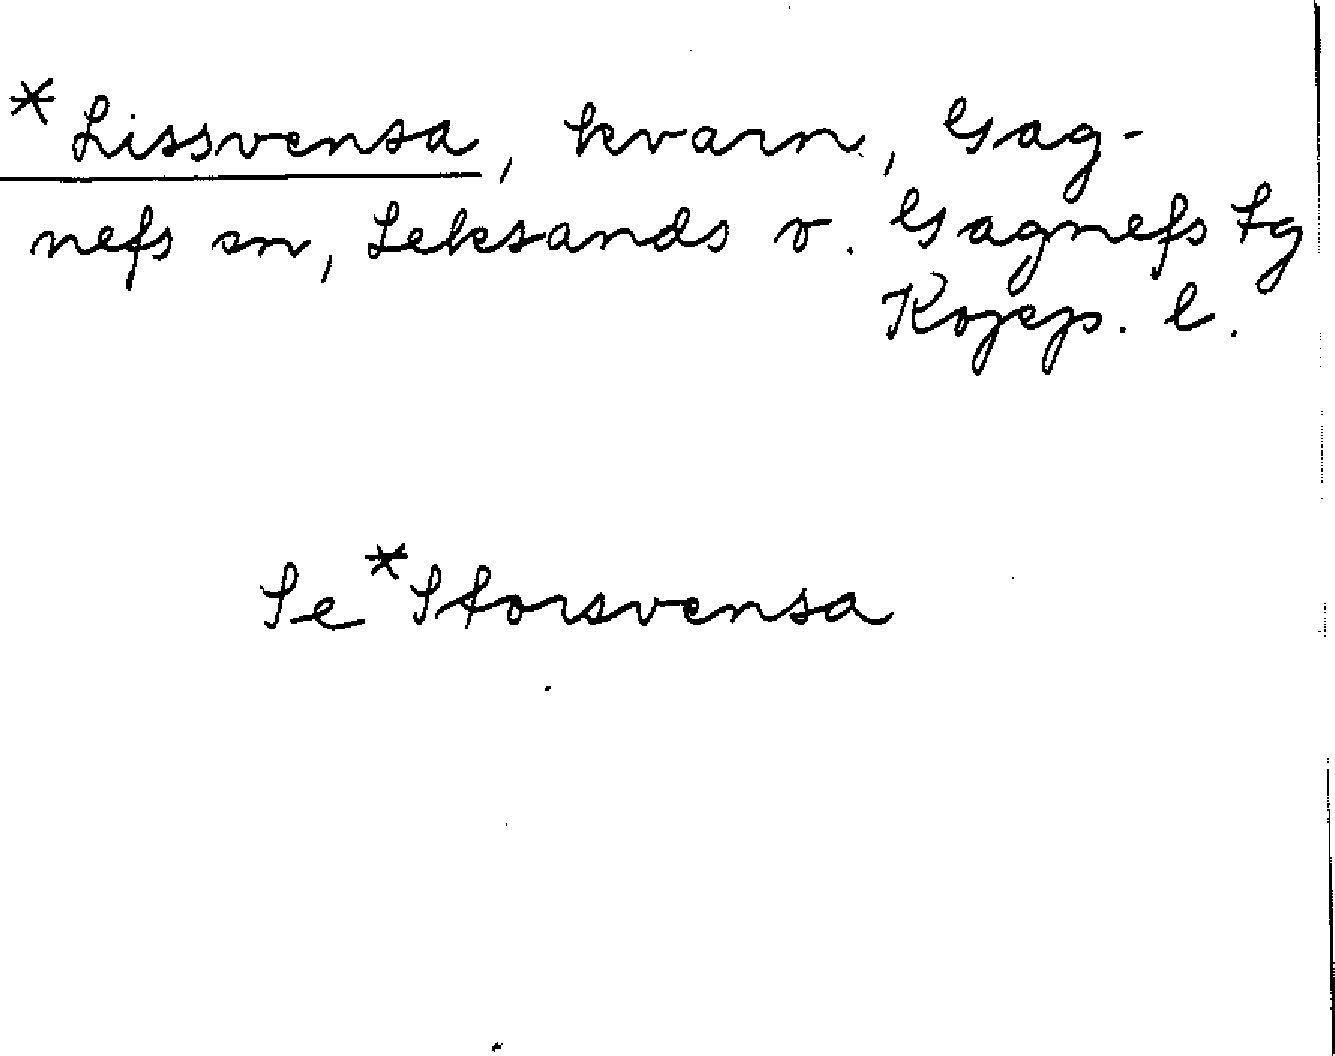 *Lissvensa, kvarn, Gag-
nefs sn, Leksands o. Gagnefs tg
Kopp. l.
Se *Storsvensa